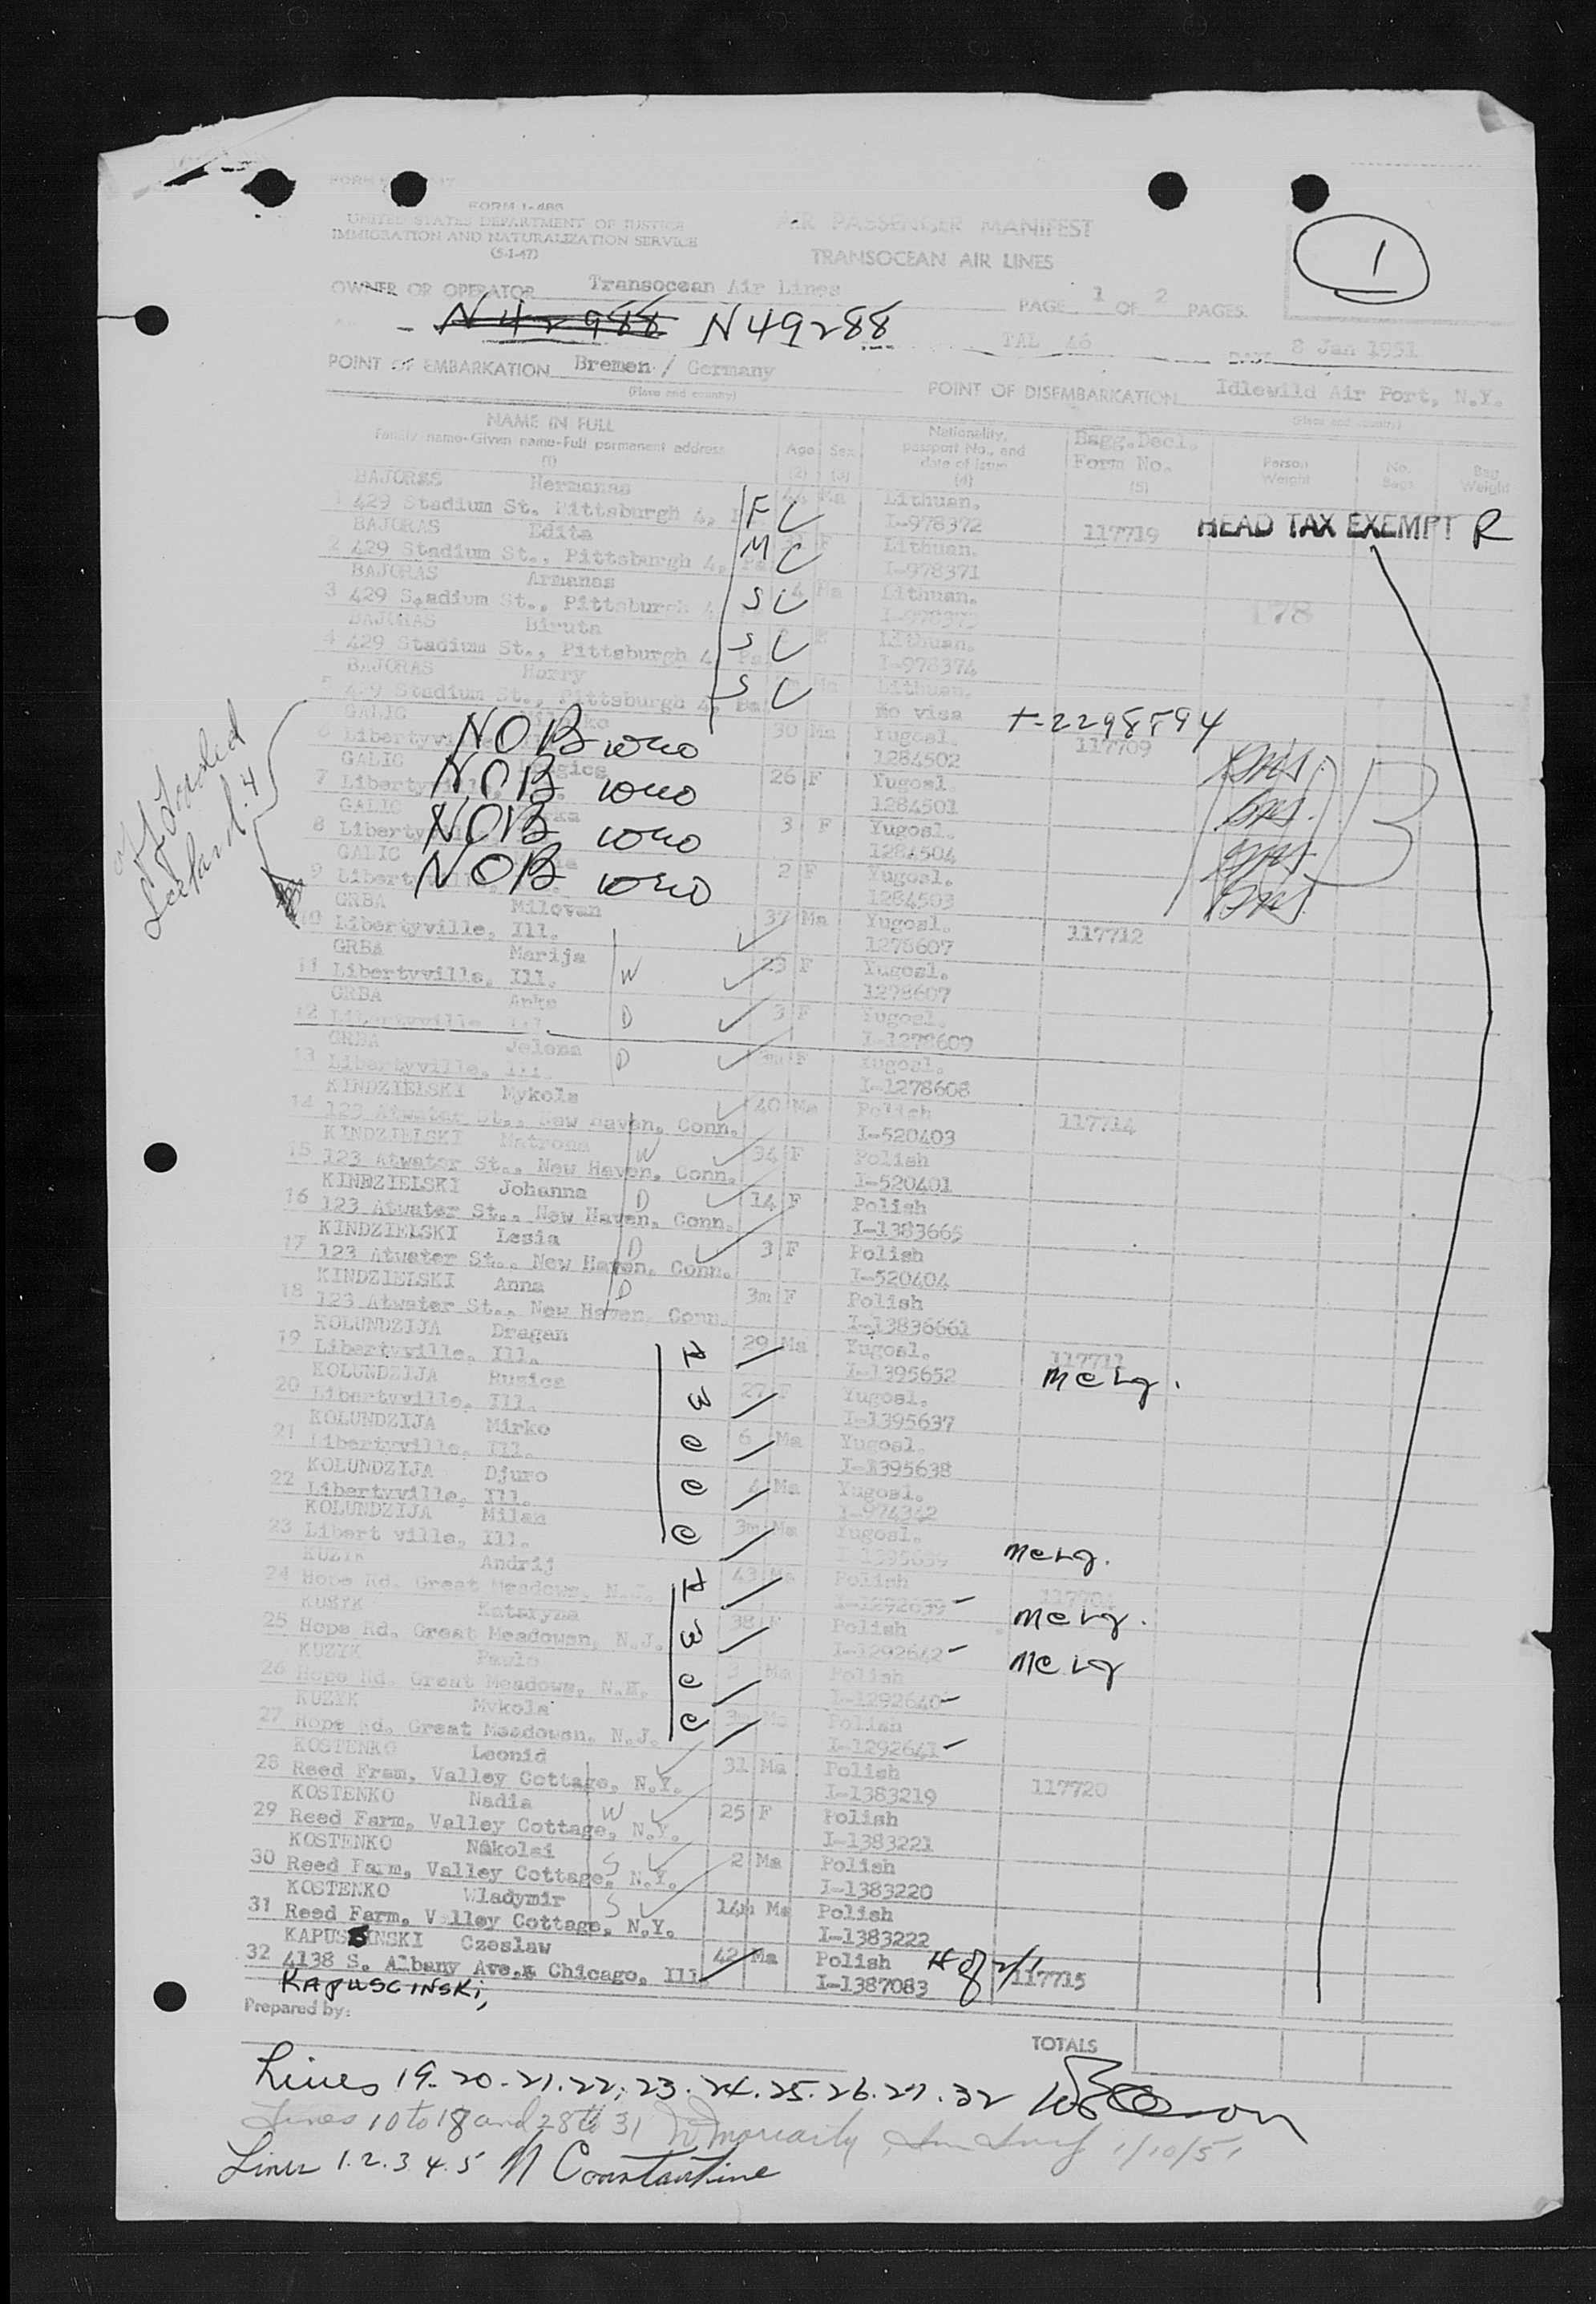 FORM I-466
UNITED STATES DEPARTMENT OF JUSTICE
IMMIGRATION AND NATURALIZATION SERVICE
(5-1-47)
AIR PASSENGER MANIFEST
TRANSOCEAN AIR LINES
1
OWNER OR OPERATOR Transocean Air Lines
PAGE 1 OF 2 PAGES.
N42988 N49288
TAL 46 DATE 8 Jan 1951
POINT OF EMBARKATION Bremen / Germany
(Place and country)
POINT OF DISEMBARKATION Idlewild Air Port, N.Y.
(Place and country)
NAME IN FULL
Family name-Given name-Full permanent address
(1)
Age (2) Sex (3)
Nationality, passport No., and date of issue (4)
Bagg.Decl. Form No. (5)
Person Weight
No. Bags
Bag Weight
BAJORAS Hermanas 44 Ma Lithuan.
1 429 Stadium St. Pittsburgh 4, F C I-978372 117719 HEAD TAX EXEMPT R
BAJORAS Edita F Lithuan.
2 429 Stadium St., Pittsburgh 4, Pa M C I-978371
BAJORAS Armanas 4 Ma Lithuan.
3 429 S,adium St., Pittsburgh S C 178
BAJORAS Biruta F Lithuan.
4 429 Stadium St., Pittsburgh 4, Pa S C I-978374
BAJORAS Harry Ma Lithuan.
5 429 Stadium St., Pittsburgh 4, Pa S C no visa T-2298594
off loaded
Iceland. 4
GALIC 30 Ma Yugosl. 117709
6 Libertyville NOB 1284502
GALIC 26 F Yugosl.
7 NOB 1284501
GALIC 3 F Yugosl.
8 NOB 1284504
GALIC 2 F Yugosl.
9 NOB 1284503
GRBA Milovan 37 Ma Yugosl.
10 Libertyville, Ill. 1278607 117712
GRBA Marija 29 F Yugosl.
11 Libertyville, Ill. W 1278607
GRBA Anka 3 F Yugosl.
12 Libertyville Ill. D I-1278609
GRBA Jelena 3m F Yugosl.
13 Libertyville, Ill. D I-1278608
KINDZIELSKI Mykola 40 Ma Polish
14 123 Atwater St., New Haven, Conn. I-520403 117714
KINDZIELSKI Matrona W 34 F Polish
15 123 Atwater St., New Haven, Conn. I-520401
KINDZIELSKI Johanna D 14 F Polish
16 123 Atwater St., New Haven, Conn. I-1383665
KINDZIELSKI Lesia D 3 F Polish
17 123 Atwater St., New Haven, Conn. I-520404
KINDZIELSKI Anna D 3m F Polish
18 123 Atwater St., New Haven, Conn. I-13836661
KOLUNDZIJA Dragan 29 Ma Yugosl.
19 Libertyville, Ill. H I-1395652 117711
KOLUNDZIJA Rusica 27 F Yugosl.
20 Libertyville, Ill. W I-1395637
KOLUNDZIJA Mirko 6 Ma Yugosl.
21 Libertyville, Ill. C I-1395638
KOLUNDZIJA Djuro 4 Ma Yugosl.
22 Libertyville, Ill. C I-974342
KOLUNDZIJA Milan 3m Ma Yugosl.
23 Libert ville, Ill. C
KUZYK Andrij 43 Ma Polish
24 Hope Rd. Great Meadows, N.J. H I-1292639
KUZYK Kataryna 38 F Polish
25 Hope Rd. Great Meadowsn, N.J. W I-1292642
KUZYK Paulo 3 Ma Polish
26 Hope Rd. Great Meadows, N.J. C I-1292640
KUZYK Mykola 3m Ma Polish
27 Hope Rd. Great Meadowsn, N.J. C I-1292641
KOSTENKO Leonid 31 Ma Polish
28 Reed Fram, Valley Cottage, N.Y. I-1383219 117720
KOSTENKO Nadia W 25 F Polish
29 Reed Farm, Valley Cottage, N.Y. I-1383221
KOSTENKO Nikolai S 2 Ma Polish
30 Reed Farm, Valley Cottage, N.Y. I-1383220
KOSTENKO Wladymir S 14m Ma Polish
31 Reed Farm, Valley Cottage, N.Y. I-1383222
KAPUSSINSKI Czeslaw 42 Ma Polish
32 4138 S. Albany Ave., Chicago, Ill. I-1387083 117715
KAPUSCINSKI,
Prepared by:
TOTALS
Lines 19-20-21.22.23.24.25.26.27.32
Lines 10 to 18 and 28 to 31 Moriarity 1/10/51
Lines 1.2.3.4.5 N Constantine